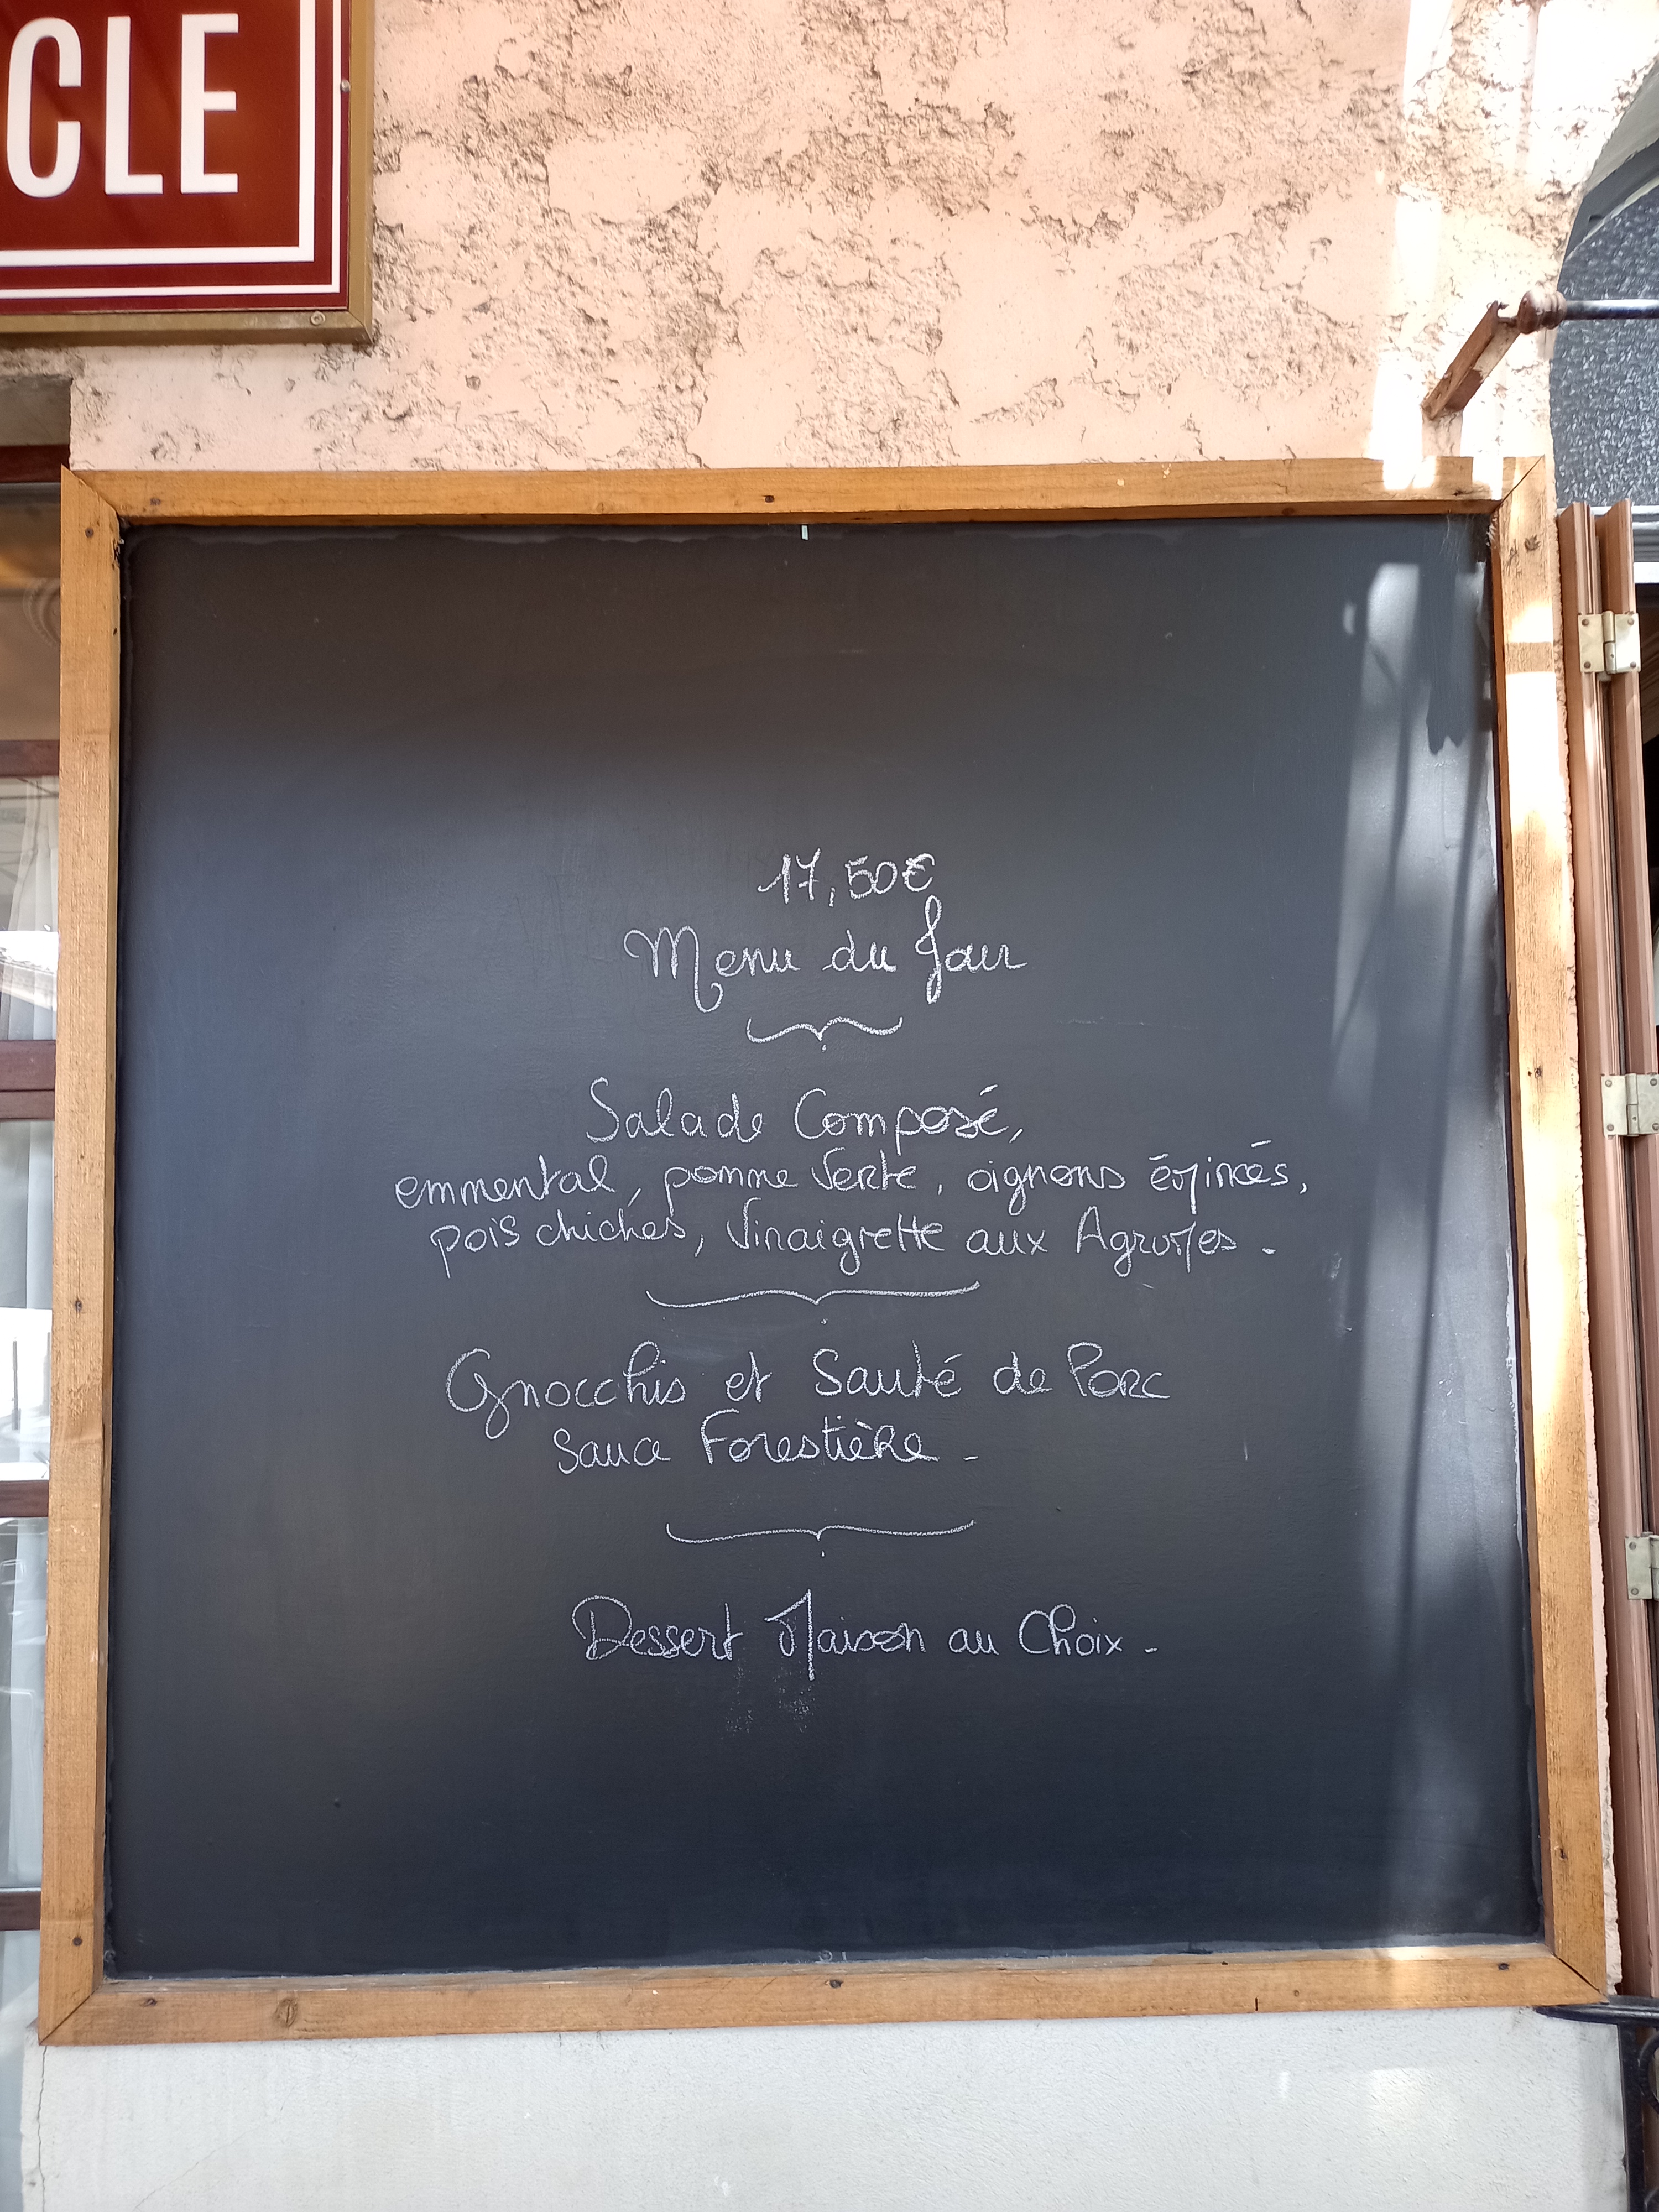 CLE
17,50€
Menu du Jour
Salade Composé,
emmental, pomme verte, oignons émincés,
pois chiches, Vinaigrette aux Agrumes.
Gnocchis et Sauté de Porc
Sauce Forestière -
Dessert Maison au Choix -